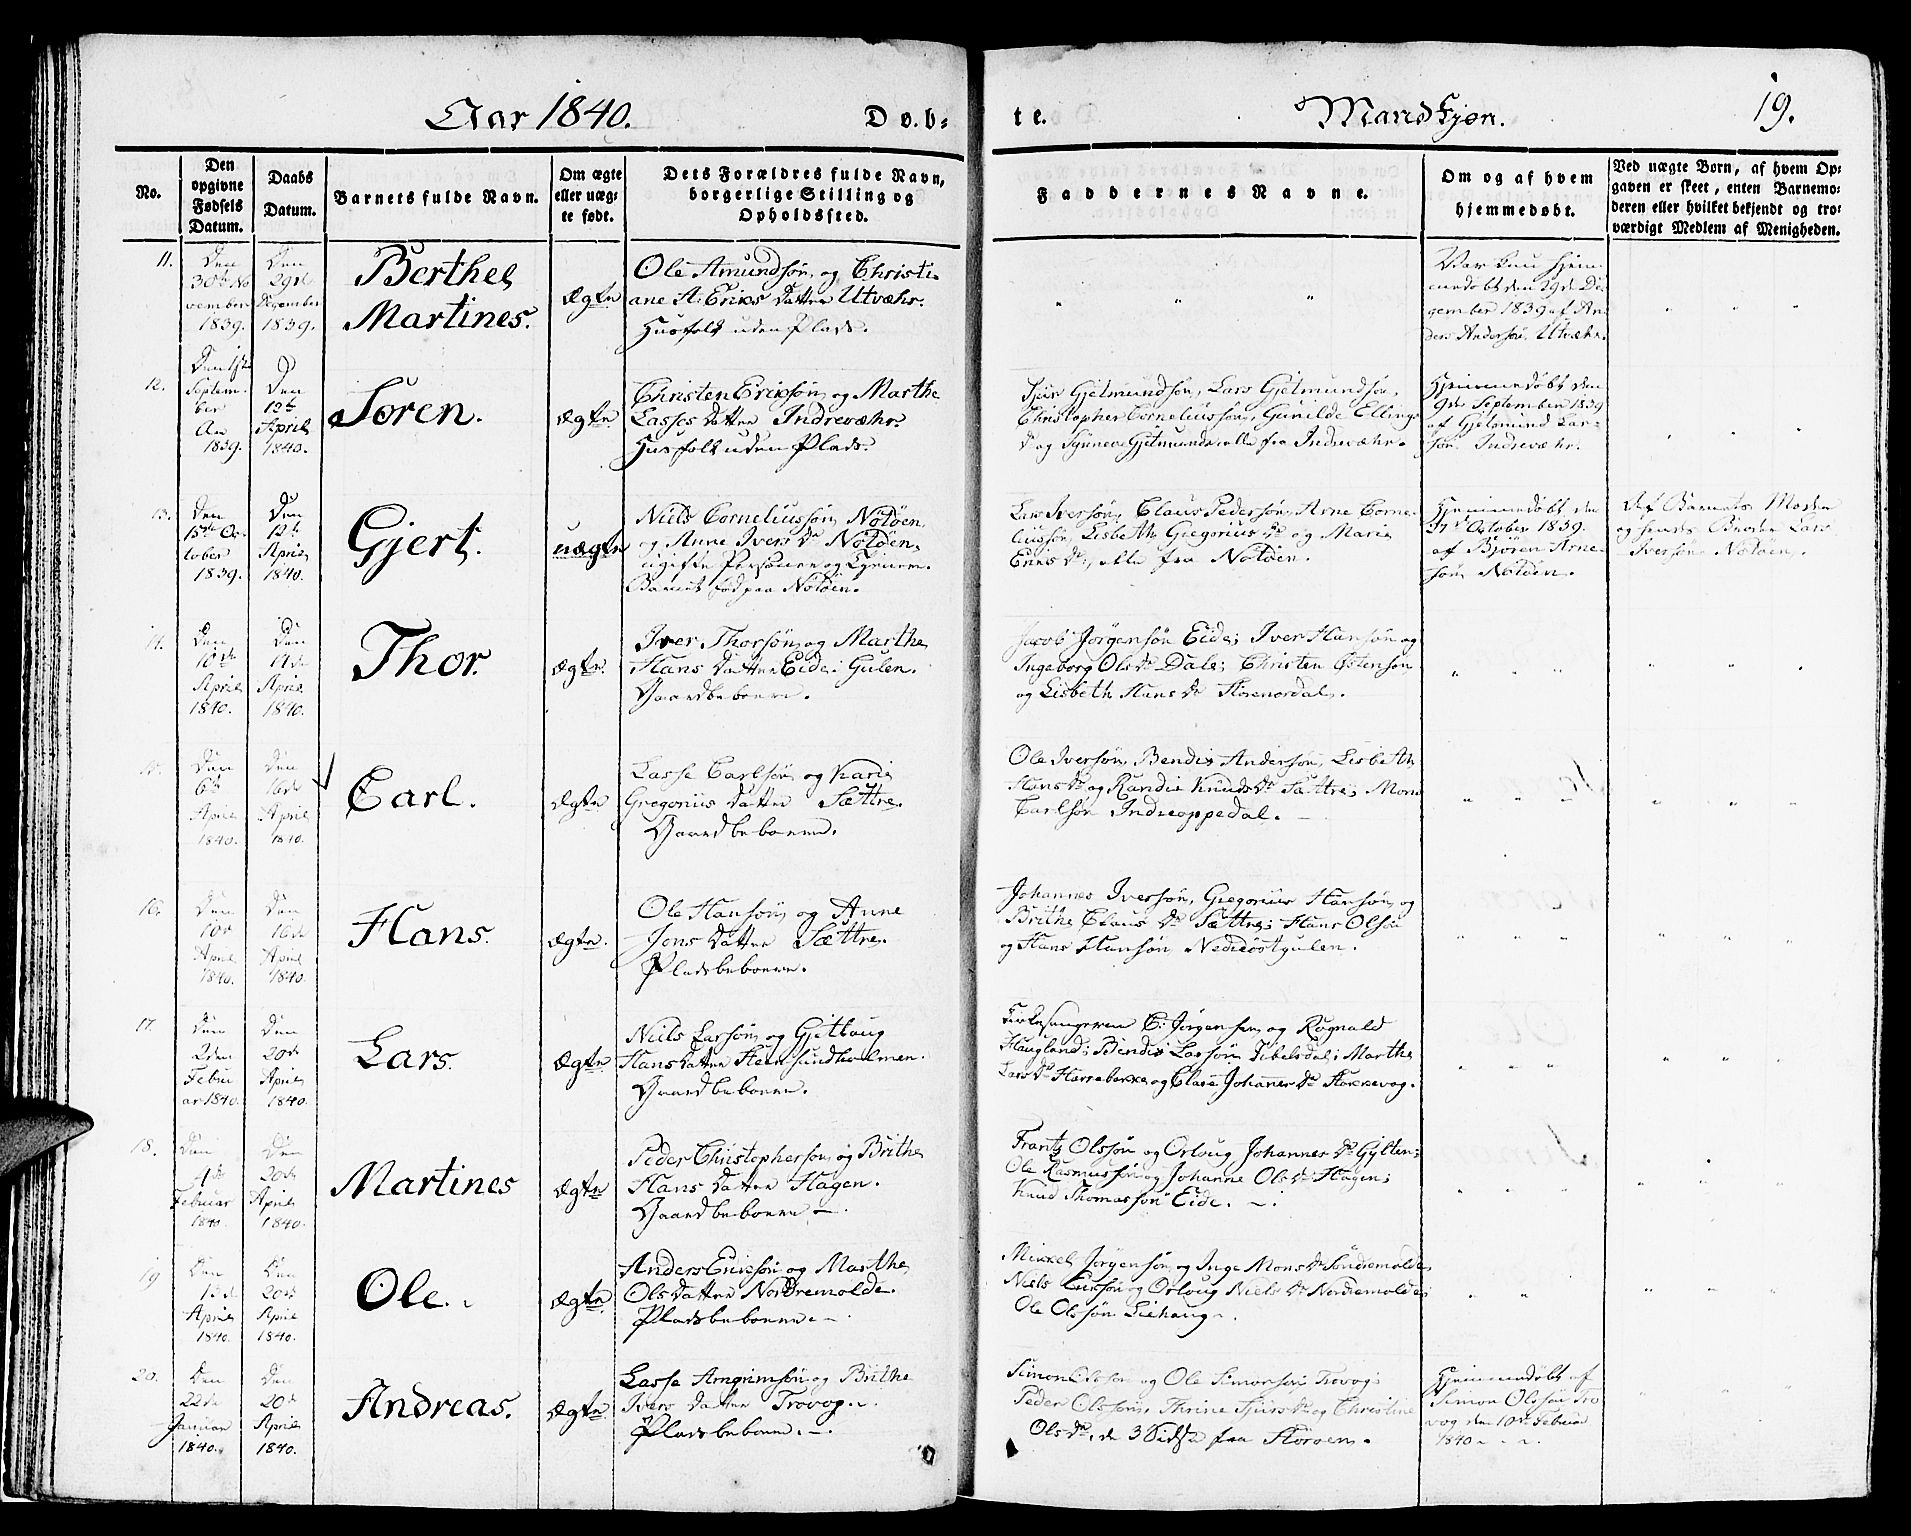 Aar 1840.
Døb-
te.
Mandkjøn.
19.
No.
Den opgivne Fødsels Datum.
Daabs Datum.
Barnets fulde Navn.
Om ægte eller uægte født.
Dets Forældres fulde Navn, borgerlige Stilling og Opholdssted.
Faddernes Navne.
Om og af hvem hjemmedøbt.
Ved uægte Børn, af hvem Op-
gaven er skeet, enten Barnemo-
deren eller hvilket bekjendt og tro-
værdigt Medlem af Menigheden.
11.
Den
30te No
vember
1839.
Den
29de
December
1839.
Berthel
Martines.
Ægte
Ole Amundsøn og Christi
ane A. Eriks Datter Utvæhr.
Husfolk uden Plads.
Var kun hjem
medøbt den 29de De
cember 1839 af An
ders Andersøn Utvæhr.
12.
Den
Septem
ber
1839.
Den
12te
April
1840.
Søren.
Ægte
Christen Erichsøn og Marthe
Lasses Datter Indrevæhr.
Husfolk uden Plads.
Sjur Gjetmundsøn, Lars Gjetmundsøn,
Christopher Corneliussøn, Gunilde Ellings
Dr og Synneve Gjetmunds alle fra Indrevæhr.
Hjemmedøbt den
9de September 1839
af Gjetmund Lar-
søn Indrevæhr.
13.
Den
15de Oc
tober
1839.
Den
12te
April
1840.
Gjert.
uægte
Niels Corneliussøn Notøen
og Anne Ivers Dr Notøen,
ugifte Personer og Egnere.
Barnet fød paa Notøen.
Lars Iversøn, Claus Pedersøn, Arne Corne
liussøn, Lisbeth Gregorius Dr og Marie
Eriks Dr, alle fra Notøen.
Hjemmedøbt den
October 1839.
af Bjøren Arne
søn Notøen.
Af Barnets Moder
og hendes Broder Lars
Iversøn Notøen.
14.
Den
10de
April
1840.
Den
April
1840.
Thor.
Ægte.
Iver Thorsøn og Marthe
Hans Datter Eide i Gulen.
Gaardbeboere.
Jacob Jørgensøn Eide; Iver Hansøn og
Ingeborg Ols Dr Dale; Christen Østensøn
og Lisbeth Hans Dr Store
15.
Den
6te
April
1840.
Den
16de
April
1840.
Carl.
Ægte
Lasse Carlsøn og Kari
Gregorius Datter Sættre.
Gaardbeboere.
Ole Iversøn, Bendix Andersøn, Lisbeth
Hans Dr og Randi Knuds Dr Sættre; Mons
Carlsøn Indreoppedal.
16.
Den
10de
April
1840.
Den
16de
April
1840.
Hans.
Ægte.
Ole Hansøn og Anne
Jons Datter Sættre.
Pladsbeboere.
Johannes Iversøn, Gregorius Hansøn og
Brithe Claus Dr Sættre; Hans Olsøn
og Hans Hansøn Nedreøstgulen.
17.
Den
2den
Febru
ar 1840.
Den
20de
April
1840.
Lars.
Ægte
Niels Larsøn og Gjertaug
Hans Datter Steensundholmen.
Gaardbeboere.
Kirkesangeren C. Jørgensen og Rognald
Haugland; Bendix Larsøn; Marthe
Lars Dr og Johannes Dr
18.
Den
4de
Februar
1840.
Den
20de
April
1840.
Martines
Ægte
Peder Christophersøn og Brithe
Hans Datter Hagen.
Gaardbeboere.
Frantz Olssøn og Orloug Johannes Dr Gylten;
Ole Rasmussøn og Johanne Ols Dr Hagen;
Knud Thomassøn Eide.
19
Den
13de
April
1840.
Den
20de
April
1840.
Ole.
Ægte
Anders Ericksøn og Marthe
Ols Datter Nordremolde.
Pladsbeboere.
Mikkel Jørgensøn og Inge Mons Dr Søndremolde,
Niels Ericksøn og Orloug Niels Dr Nordremolde;
Ole Olssøn Liehaug.
20.
Den
22de
Januar
1840.
Den
20de
April
1840.
Andreas.
Ægte
Lasse Arngrimsøn og Brithe
Ivers Datter Trovog.
Pladsbeboere.
Simon Olsson og Ole Simonsøn Trovog;
Peder Olssøn, Thrine Sjurs Dr og Christine
Ols Dr, de 3 Sidste fra Størøen.
Hjemmedøbt af
Simon Olssøn Tro
vog den 10de Februar
1840.